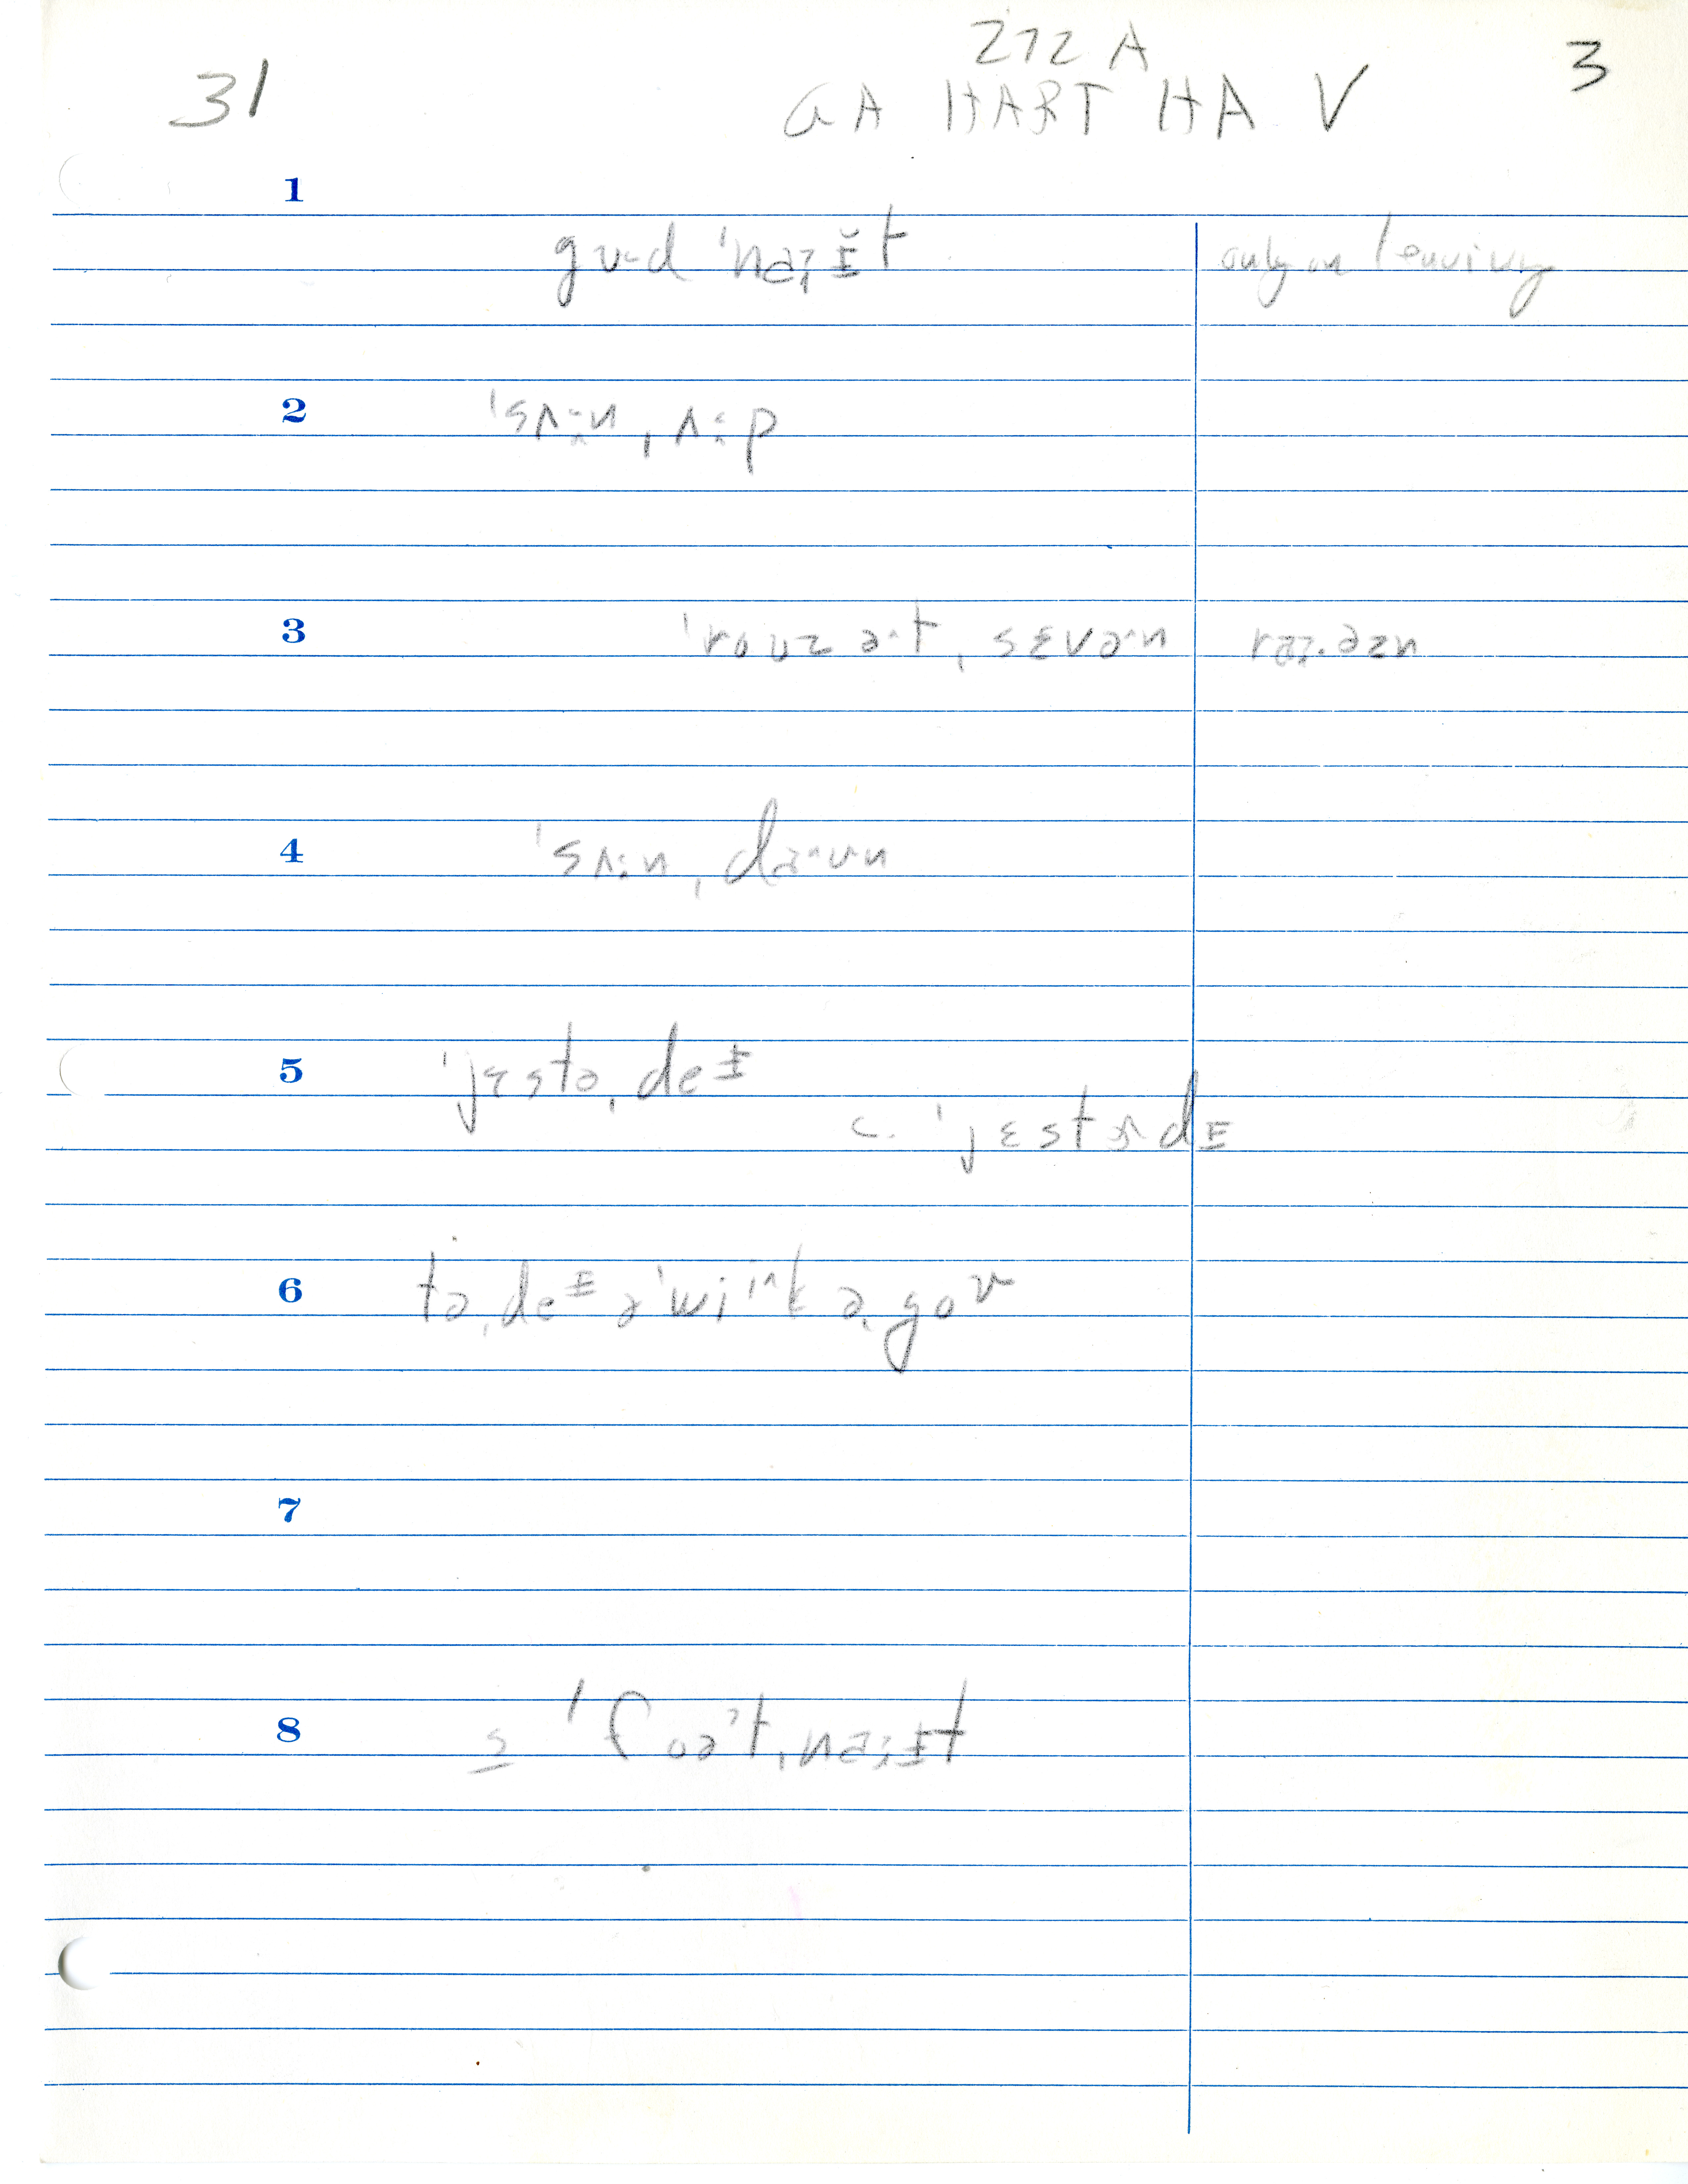 31
272 A
GA HART HA V
3
1
gʊ-d ˈnaˑɪ̵̆t
only on leaving
2
ˈsʌːn ˌʌːp
3
ˈroʊz ət ˌsɛvən
4
ˈsʌːn ˌdaʊn
5
ˈjɛstəˌdeɪ̵
c. ˈjɛstɚdɪ̵
6
təˌdeɪ̵ ə ˈwiik əˌgoʊ
7
8
ə ˈfoət ˌnaˑɪ̵t